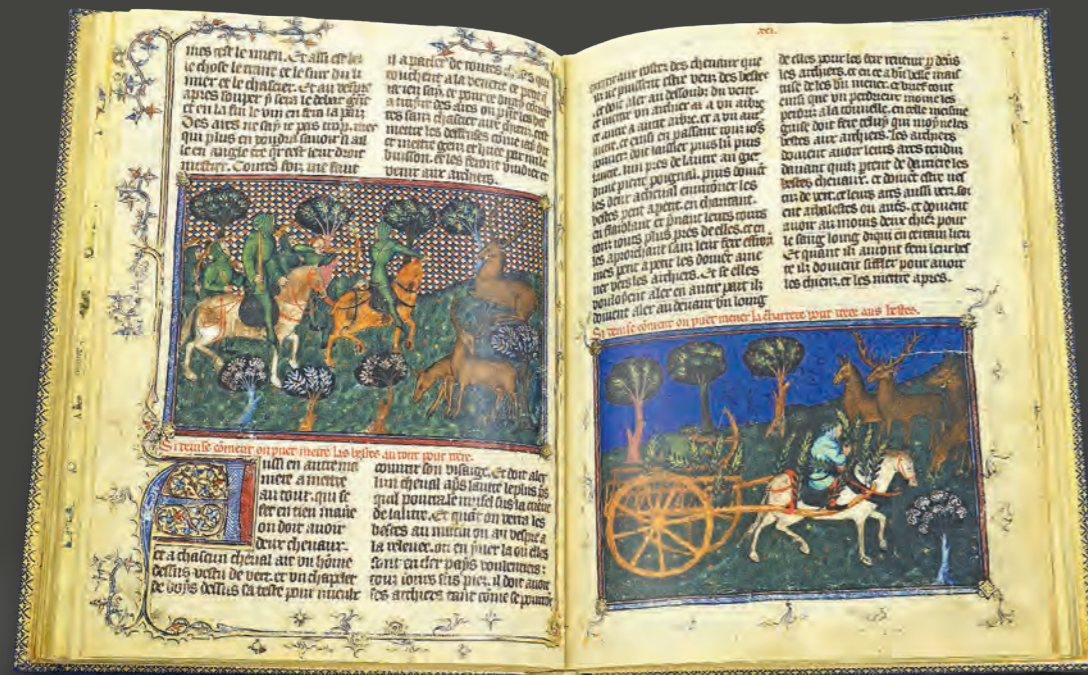 mes cest le mien. Et assi est bel
le chose le traire et le suir du li
mier et le chascier. Et au vespre
apres souper
et en la fin le vin en fera la paix
Des ars ne say ie pas trop. mes
qui plus en voudra savoir si ail
le en angleterre quar cest leur droit
mestier. Toutes fois me faut
il a parler de toutes
touchent a la venerie
ie en say. et pour ce diray comme
a traire des ars on prent les bes
tes sanz chascier aux chiens. cest
mettre les deffenses come iai dit
et mettre gens et huer par mile
buisson. et les feront vuidier et
venir aux archiers.
Si devise coment on puet metre les bestes au tour pour trere.
Aussi en autre ma
niere a mettre
au tour. qui se
fet en tien manie
on doit avoir
deux chevaux.
et a chascun cheval ait un home
dessus vestu de vert. et un chapelet
de boys dessus sa teste pour mieulx
couvrir son visaige. Et doit aler
lun cheval aps lautre le plus ps
quil pourra le musel sus la cueue
de lautre. Et quant on verra les
bestes au matin ou au vespre a
la relevee. ou en yver la ou elles
sont en cler pays voulentiers
touz iours sus piez. il doit avoir
ses archiers tant come se pourra
xci.
extre aux costez des chevaux que
ilz ne puissent estre veuz des bestes
et doit aler au dessoubz du vent.
et metre un archier ca a un arbre
et autre a autre arbre. et a un au
tre. et einsi en passant touz iours
lun pres de lautre au giet
dune pierre poignal. puis doivent
les deux a cheval environner les
bestes petit a petit. en chantant.
en flavelant et prenant leurs tours
touz iours plus pres de elles. et en
les aprochant sanz leur fere effroy
mes petit a petit les doivent ame
ner vers les archiers. Et se elles
vouloyent aler en autre part ilz
doivent aler au devant un loing
de elles pour les fere revenir par devers
les archiers. et en ce a bien belle mais
trise de les bien mener. et bref tout
einsi que un perdrieur moine les
perdriz a la tonnelle. en celle mesme
guise doit fere celuy qui moyne les
bestes aux archiers. les archiers
doivent avoir leurs arcs tendus
davant quilz partent de darriere les
bestes chevaux. et doivent estre vestuz
de vert. et leurs arcs aussi vers. soi
ent arbalestes ou arcs. et doivent
avoir au moins deux chiens pour
le sang loing diqui en certain lieu
Et quant ilz auront feru leur bes
te ilz doivent siffler pour avoir
les chiens. et les mettre apres.
Si devise coment on puet mener la charrete pour trere aus bestes.